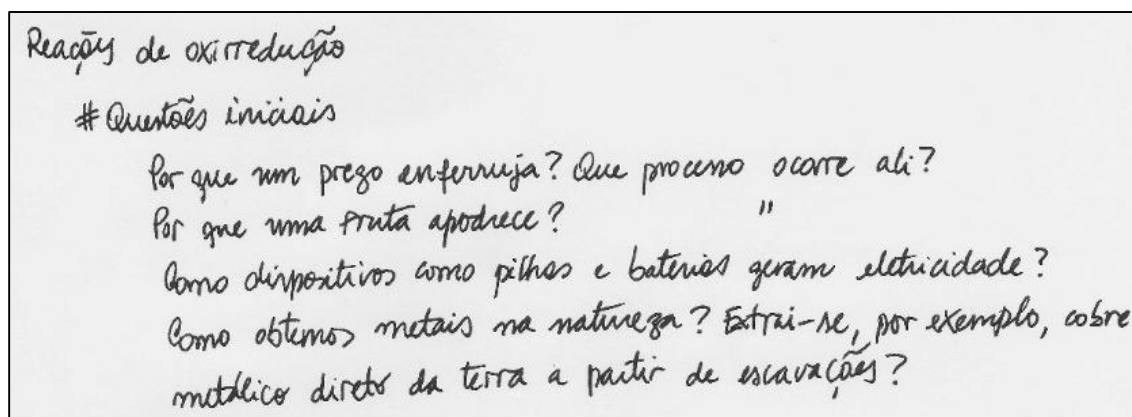 Reações de oxirredução
# Questões iniciais
Por que um prego enferruja? Que processo ocorre ali?
Por que uma fruta apodrece? "
Como dispositivos como pilhas e baterias geram eletricidade?
Como obtemos metais na natureza? Extrai-se, por exemplo, cobre
metálico direto da terra a partir de escavações?